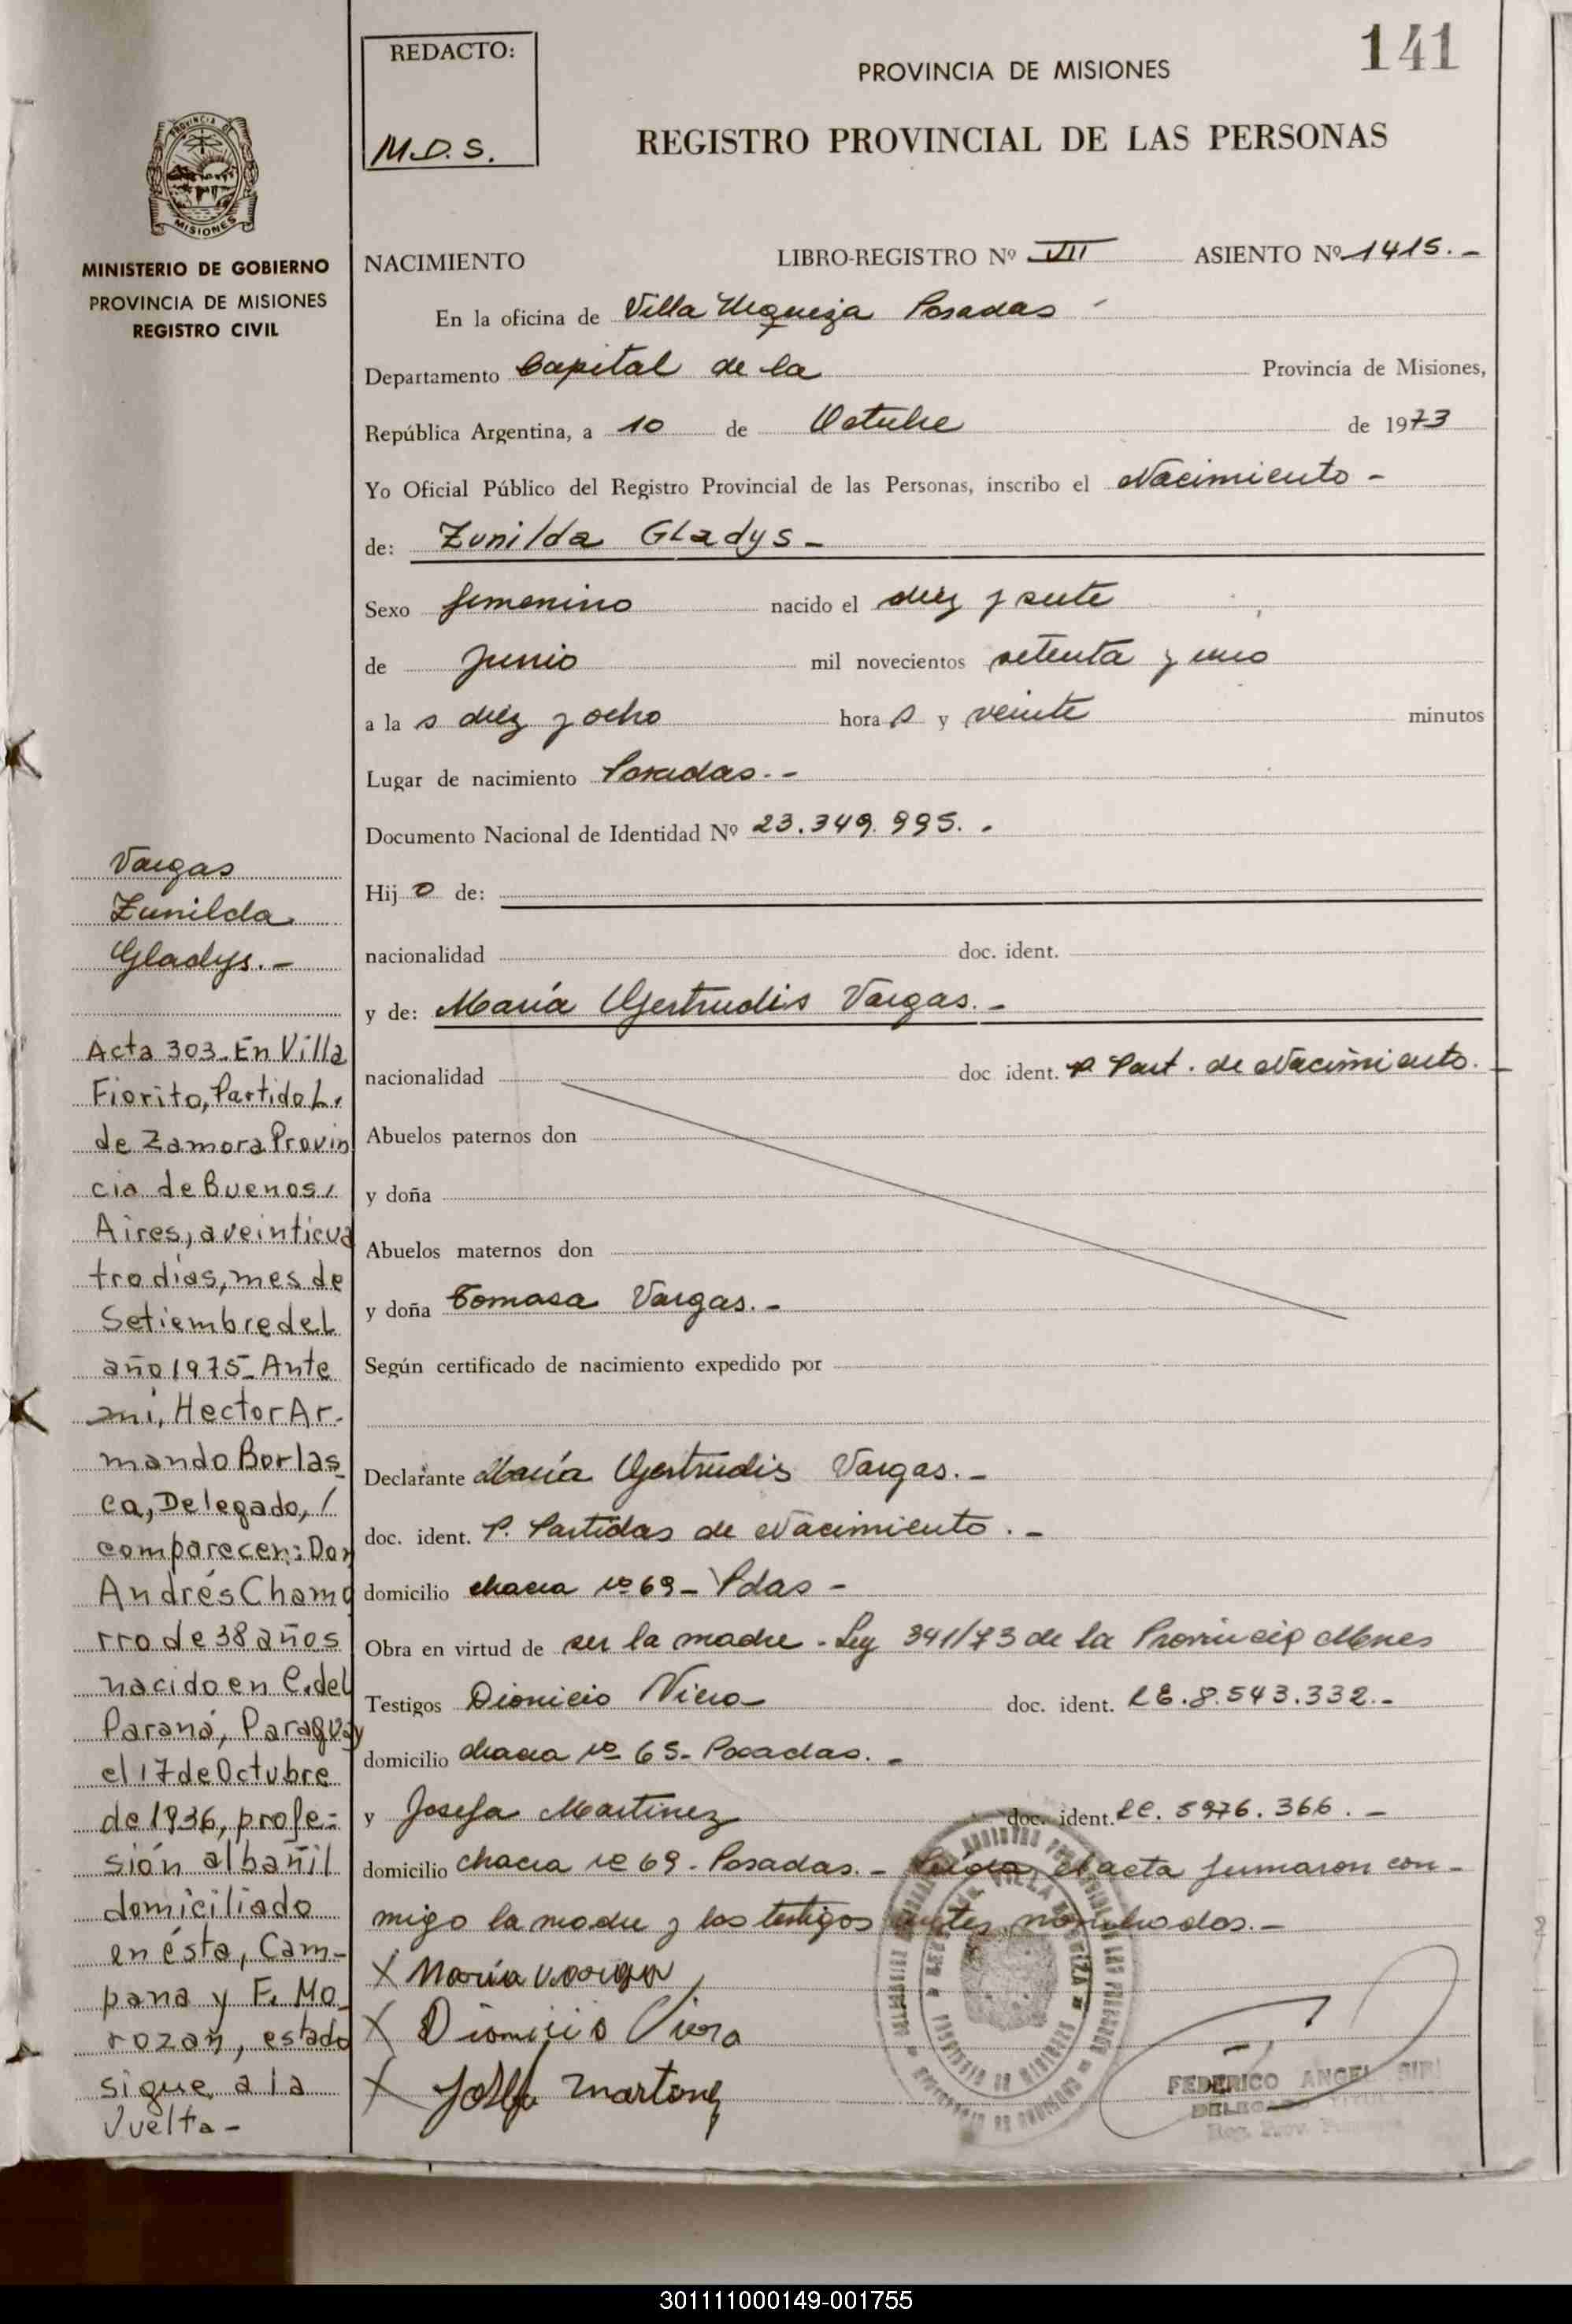 141
REDACTO:
M.D.S.
PROVINCIA DE MISIONES
REGISTRO PROVINCIAL DE LAS PERSONAS
PROVINCIA DE
MISIONES
MINISTERIO DE GOBIERNO
PROVINCIA DE MISIONES
REGISTRO CIVIL
NACIMIENTO LIBRO-REGISTRO Nº VII ASIENTO Nº 1415.-
En la oficina de Villa Urquiza Posadas
Departamento Capital de la Provincia de Misiones,
República Argentina, a 10 de Octubre de 1973
Yo Oficial Público del Registro Provincial de las Personas, inscribo el Nacimiento -
de: Zunilda Gladys -
Sexo femenino nacido el diez y siete
de junio mil novecientos setenta y uno
a la s diez y ocho hora s y veinte minutos
Lugar de nacimiento Posadas. -
Documento Nacional de Identidad Nº 23.349.995. -
Hij o de:
nacionalidad doc. ident.
y de: María Gertrudis Vargas. -
nacionalidad doc ident. P. Part. de Nacimiento. -
Abuelos paternos don
y doña
Abuelos maternos don
y doña Tomasa Vargas. -
Según certificado de nacimiento expedido por
Declarante María Gertrudis Vargas. -
doc. ident. P. Partidas de Nacimiento. -
domicilio chacra nº 69 - Pdas -
Obra en virtud de ser la madre - Ley 341/73 de la Provincia Mnes
Testigos Dionicio Viera doc. ident. LE. 8.543.332. -
domicilio chacra nº 65 - Posadas. -
y Josefa Martinez doc. ident. LC. 5976.366. -
domicilio chacra nº 69 - Posadas. - Leída el acta firmaron con-
migo la madre y los testigos antes nombrados. -
X Maria Vargas
X Dionicio Viera
X Josefa Martinez
FEDERICO ANGEL SIRI
DELEGADO TITULAR
Reg. Prov. Personas
Vargas
Zunilda
Gladys. -
Acta 303. En Villa
Fiorito, Partido L.
de Zamora Provin
cia de Buenos /
Aires, a veinticua
tro días, mes de
Setiembre del
año 1975 - Ante
mi, Hector Ar-
mando Borlas-
ca, Delegado, /
comparecen: Don
Andrés Chamo
rro de 38 años
nacido en C. del
Paraná, Paraguay
el 17 de Octubre
de 1936, profe-
sión albañil
domiciliado
en ésta, Cam-
pana y F. Mo-
rozan, estado
sigue a la
Vuelta -
301111000149-001755